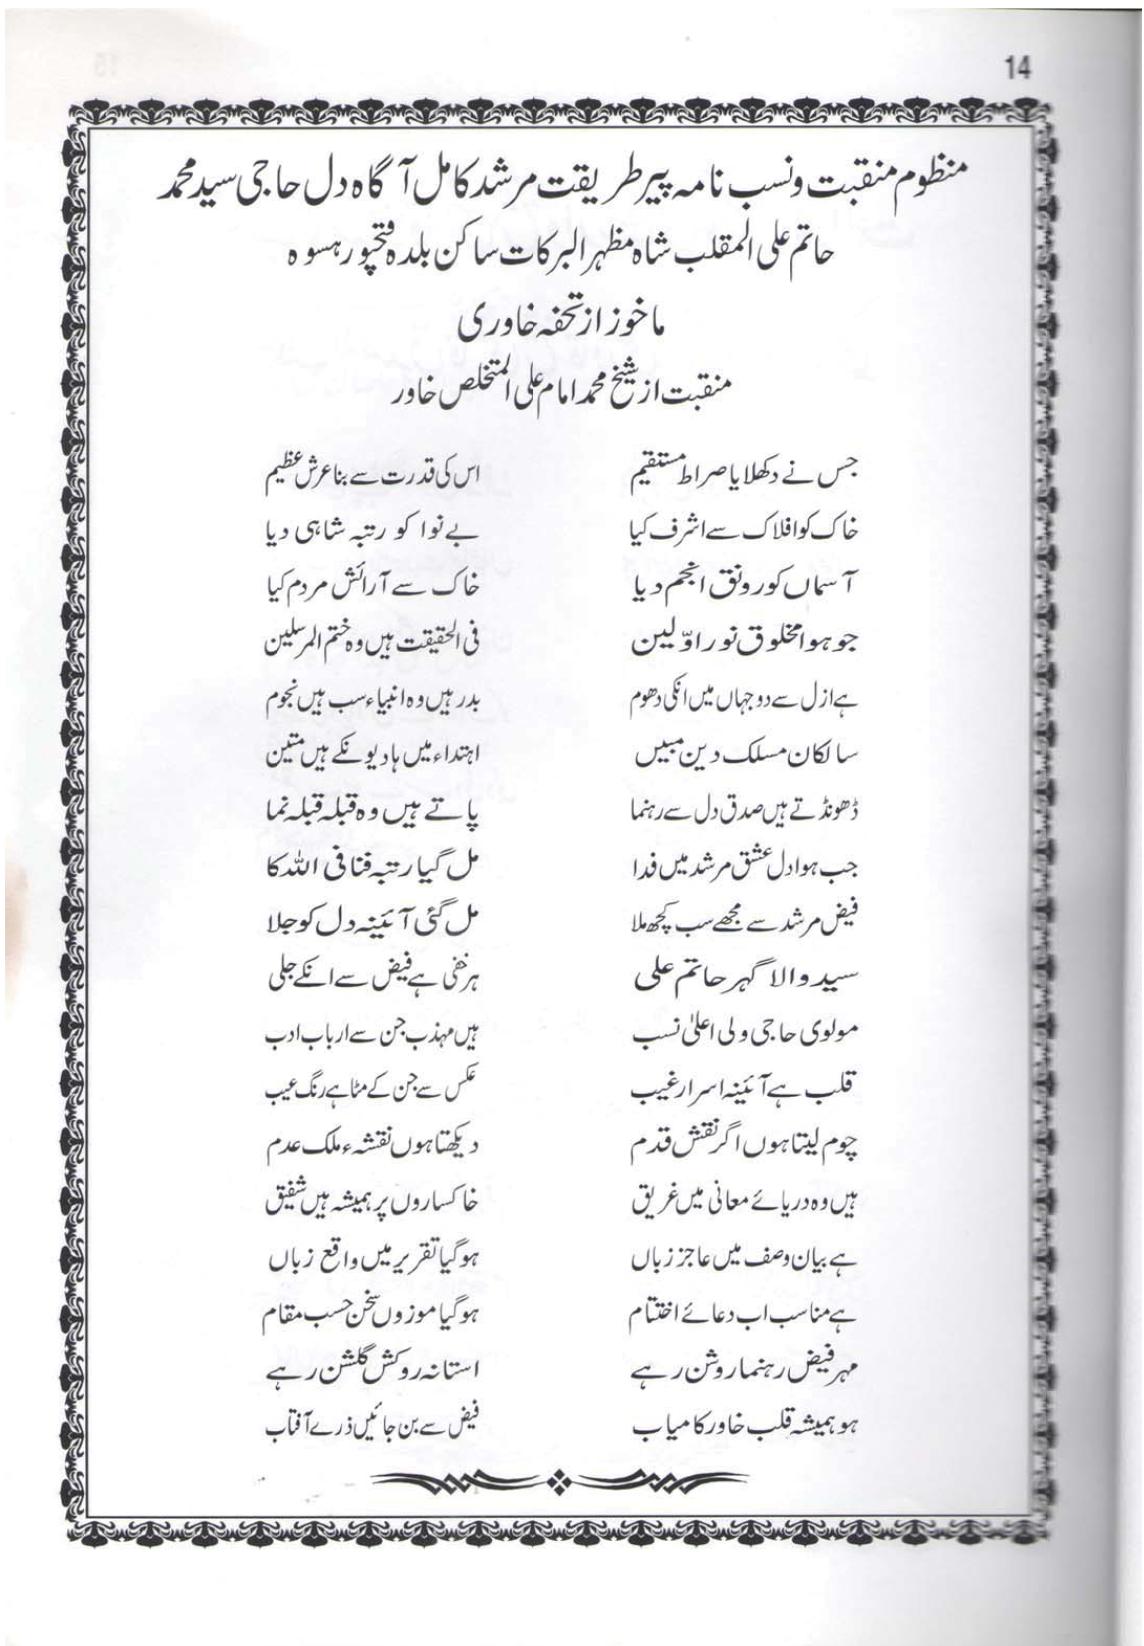 14
منظوم منقبت و نسب نامہ پیر طریقت مرشد کامل آگاہ دل حاجی سید محمد
حاتم علی المقلب شاہ مظہر البرکات ساکن بلدہ فتحپور ہسوہ
ماخوز از تحفہ خاوری
منقبت از شیخ محمد امام علی المتخلص خاور
جس نے دکھلایا صراط مستقیم اس کی قدرت سے بنا عرش عظیم
خاک کو افلاک سے اشرف کیا بے نوا کو رتبہ شاہی دیا
آسماں کو رونق انجم دیا خاک سے آرائش مردم کیا
جو ہوا مخلوق نور اوّلین فی الحقیقت ہیں وہ ختم المرسلین
ہے ازل سے دو جہاں میں انکی دھوم بدر ہیں وہ انبیاء سب ہیں نجوم
سالکان مسلک دین مبیں اہتداء میں ہادیونکے ہیں متین
ڈھونڈتے ہیں صدق دل سے رہنما پاتے ہیں وہ قبلہ قبلہ نما
جب ہوا دل عشق مرشد میں فدا مل گیا رتبہ فنا فی اللہ کا
فیض مرشد سے مجھے سب کچھ ملا مل گئی آئینہ دل کو جلا
سید والا گہر حاتم علی ہر خفی ہے فیض سے انکے جلی
مولوی حاجی ولی اعلیٰ نسب ہیں مہذب جن سے ارباب ادب
قلب ہے آئینہ اسرار غیب عکس سے جن کے مٹا ہے رنگ عیب
چوم لیتا ہوں اگر نقش قدم دیکھتا ہوں نقشہء ملک عدم
ہیں وہ دریائے معانی میں غریق خاکساروں پر ہمیشہ ہیں شفیق
ہے بیان وصف میں عاجز زباں ہوگیا تقریر میں واقع زباں
ہے مناسب اب دعائے اختتام ہوگیا موزوں سخن حسب مقام
مہر فیض رہنما روشن رہے استانہ روکش گلشن رہے
ہو ہمیشہ قلب خاور کامیاب فیض سے بن جائیں ذرے آفتاب